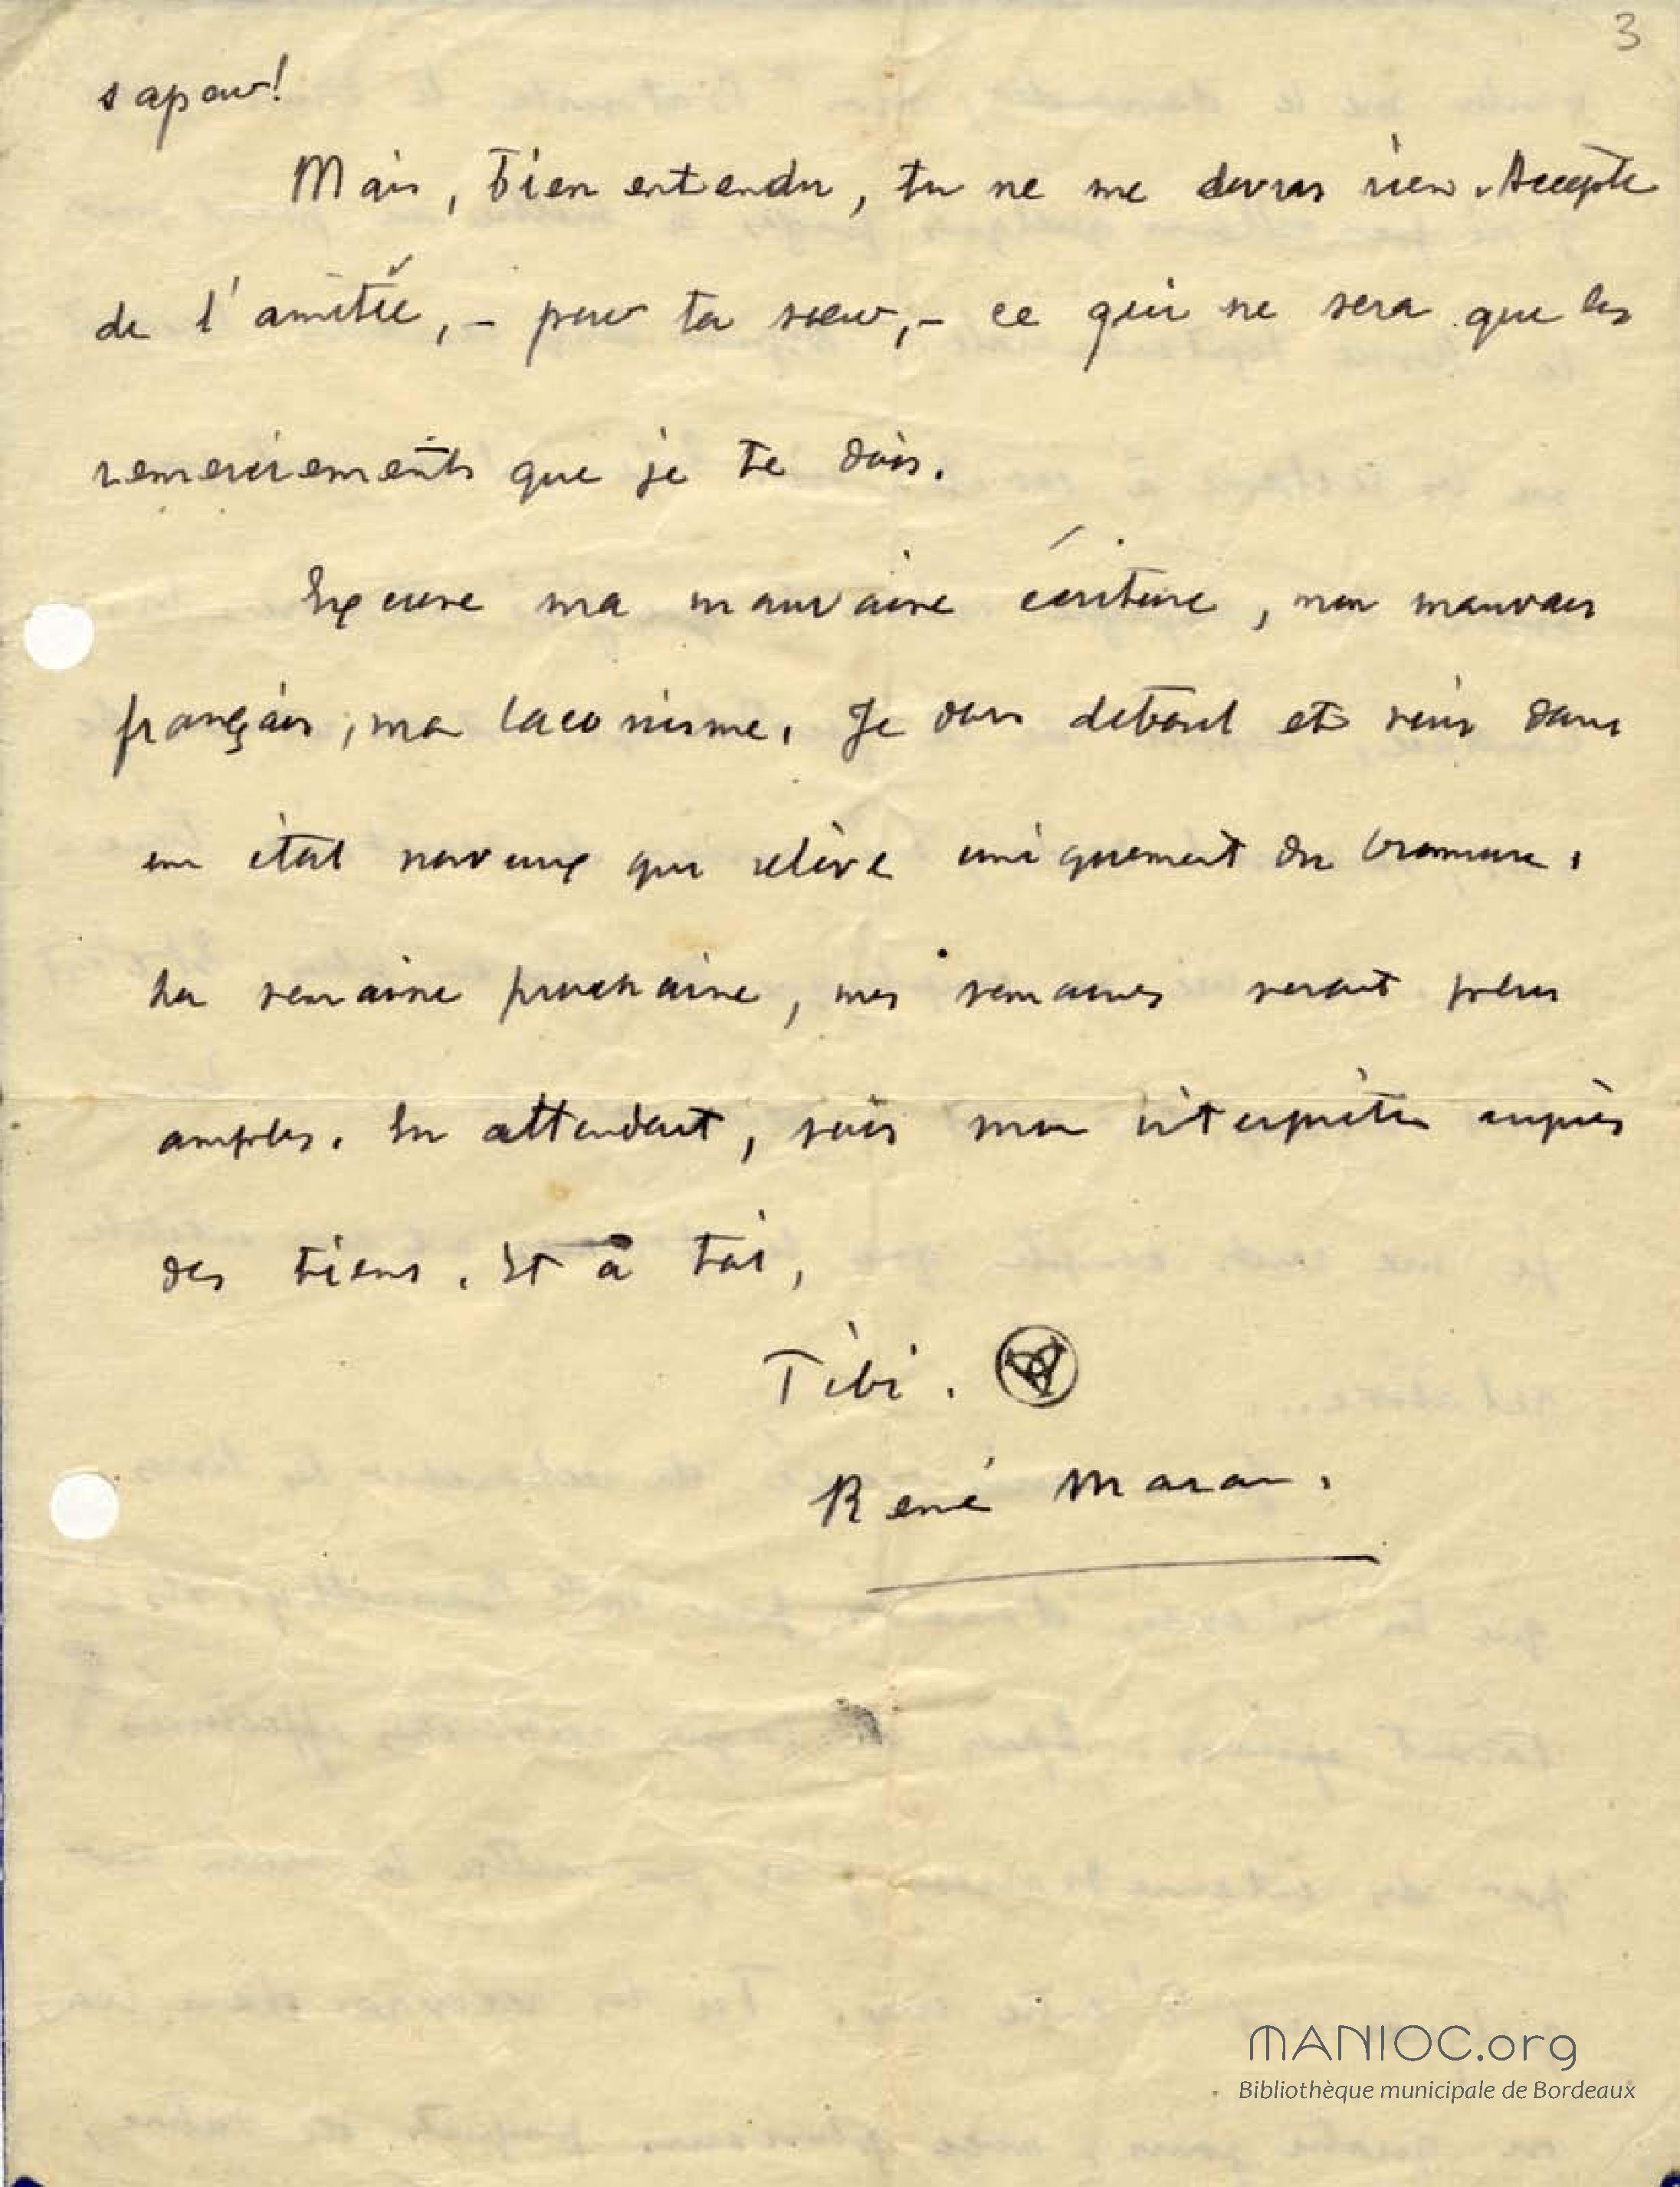 3
sapeur!
Mais, bien entendu, tu ne me devras rien. Accepte
de l'amitié, – pour ta sœur, – ce qui ne sera que les
remerciements que je te dois.
Excuse ma mauvaise écriture, mon mauvais
français, mon laconisme. Je dors debout et suis dans
un état nerveux qui relève uniquement du bromure.
La semaine prochaine, mes semaines seront plus
amples. En attendant, sois mon interprète auprès
des tiens. Et à toi,
Tibi.
René Maran.
MANIOC.org
Bibliothèque municipale de Bordeaux